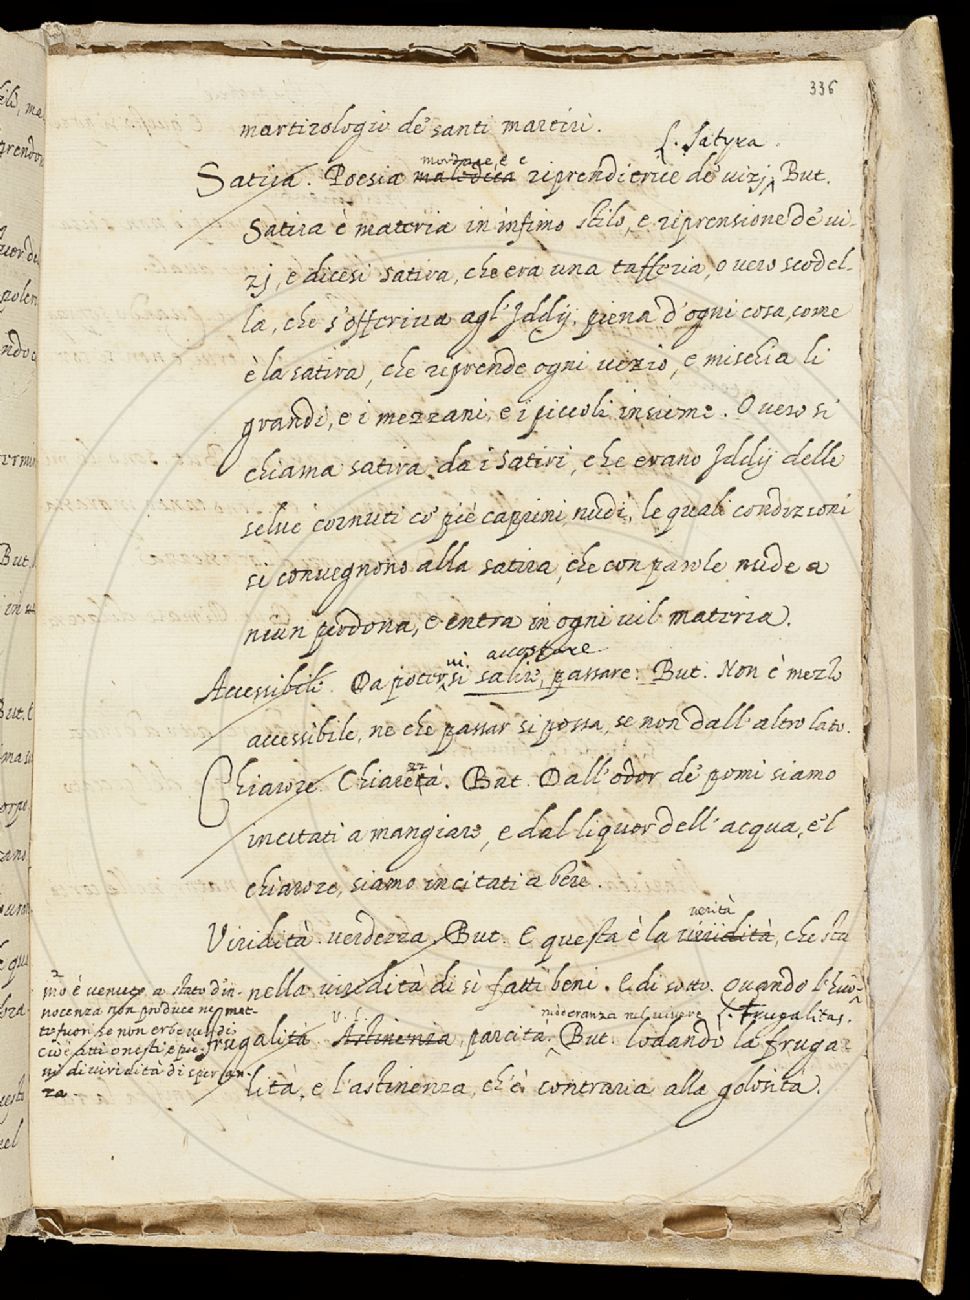 336
martirologii de' santi martiri.
L. Satyra.
mordace, e
Satira. Poesia maledica e riprenditrice de' vizj But.
Satira è materia in infimo stilo, e riprensione de' vi-
zj, e dicesi satira, che era una tafferia, o vero scodel-
la, che s'offeriva agl'Iddij, piena d'ogni cosa, come
è la satira, che riprende ogni vizio, e mischia li
grandi, e i mezzani, e i piccoli insieme. O vero si
chiama satira da i satiri, che erano Iddij delle
selve cornuti co' piè caprini, nudi, le quali condizioni
si convegnono alla satira, che con parole nude a
niun perdona, e entra in ogni vil materia.
vi accostare
Accessibile. Da potersi salire, passare: But. Non è mezzo
accessibile, ne che passar si possa, se non dall'altro lato.
Chiarore. Chiaretà. But. Dall'odor de' pomi siamo
zz
incitati a mangiare, e dal liquor dell'acqua, e'l
chiarore, siamo incitati a bere.
verità
Viridità. verdezza. But. E questa è la viridità, che sta
nella viridità di sì fatti beni. E di sotto. Quando l'huo-
mo è venuto a stato d'in-
nocenza non produce ne met-
te fuori se non erbe verdi
cioè atti onesti e pie-
ni di viridità di speran-
za
V. L. moderanza nel vivere L. Frugalitas.
Frugalità. Astinenza, parcità. But. lodando la fruga-
lità, e l'astinenza, ch'è contraria alla golosità.